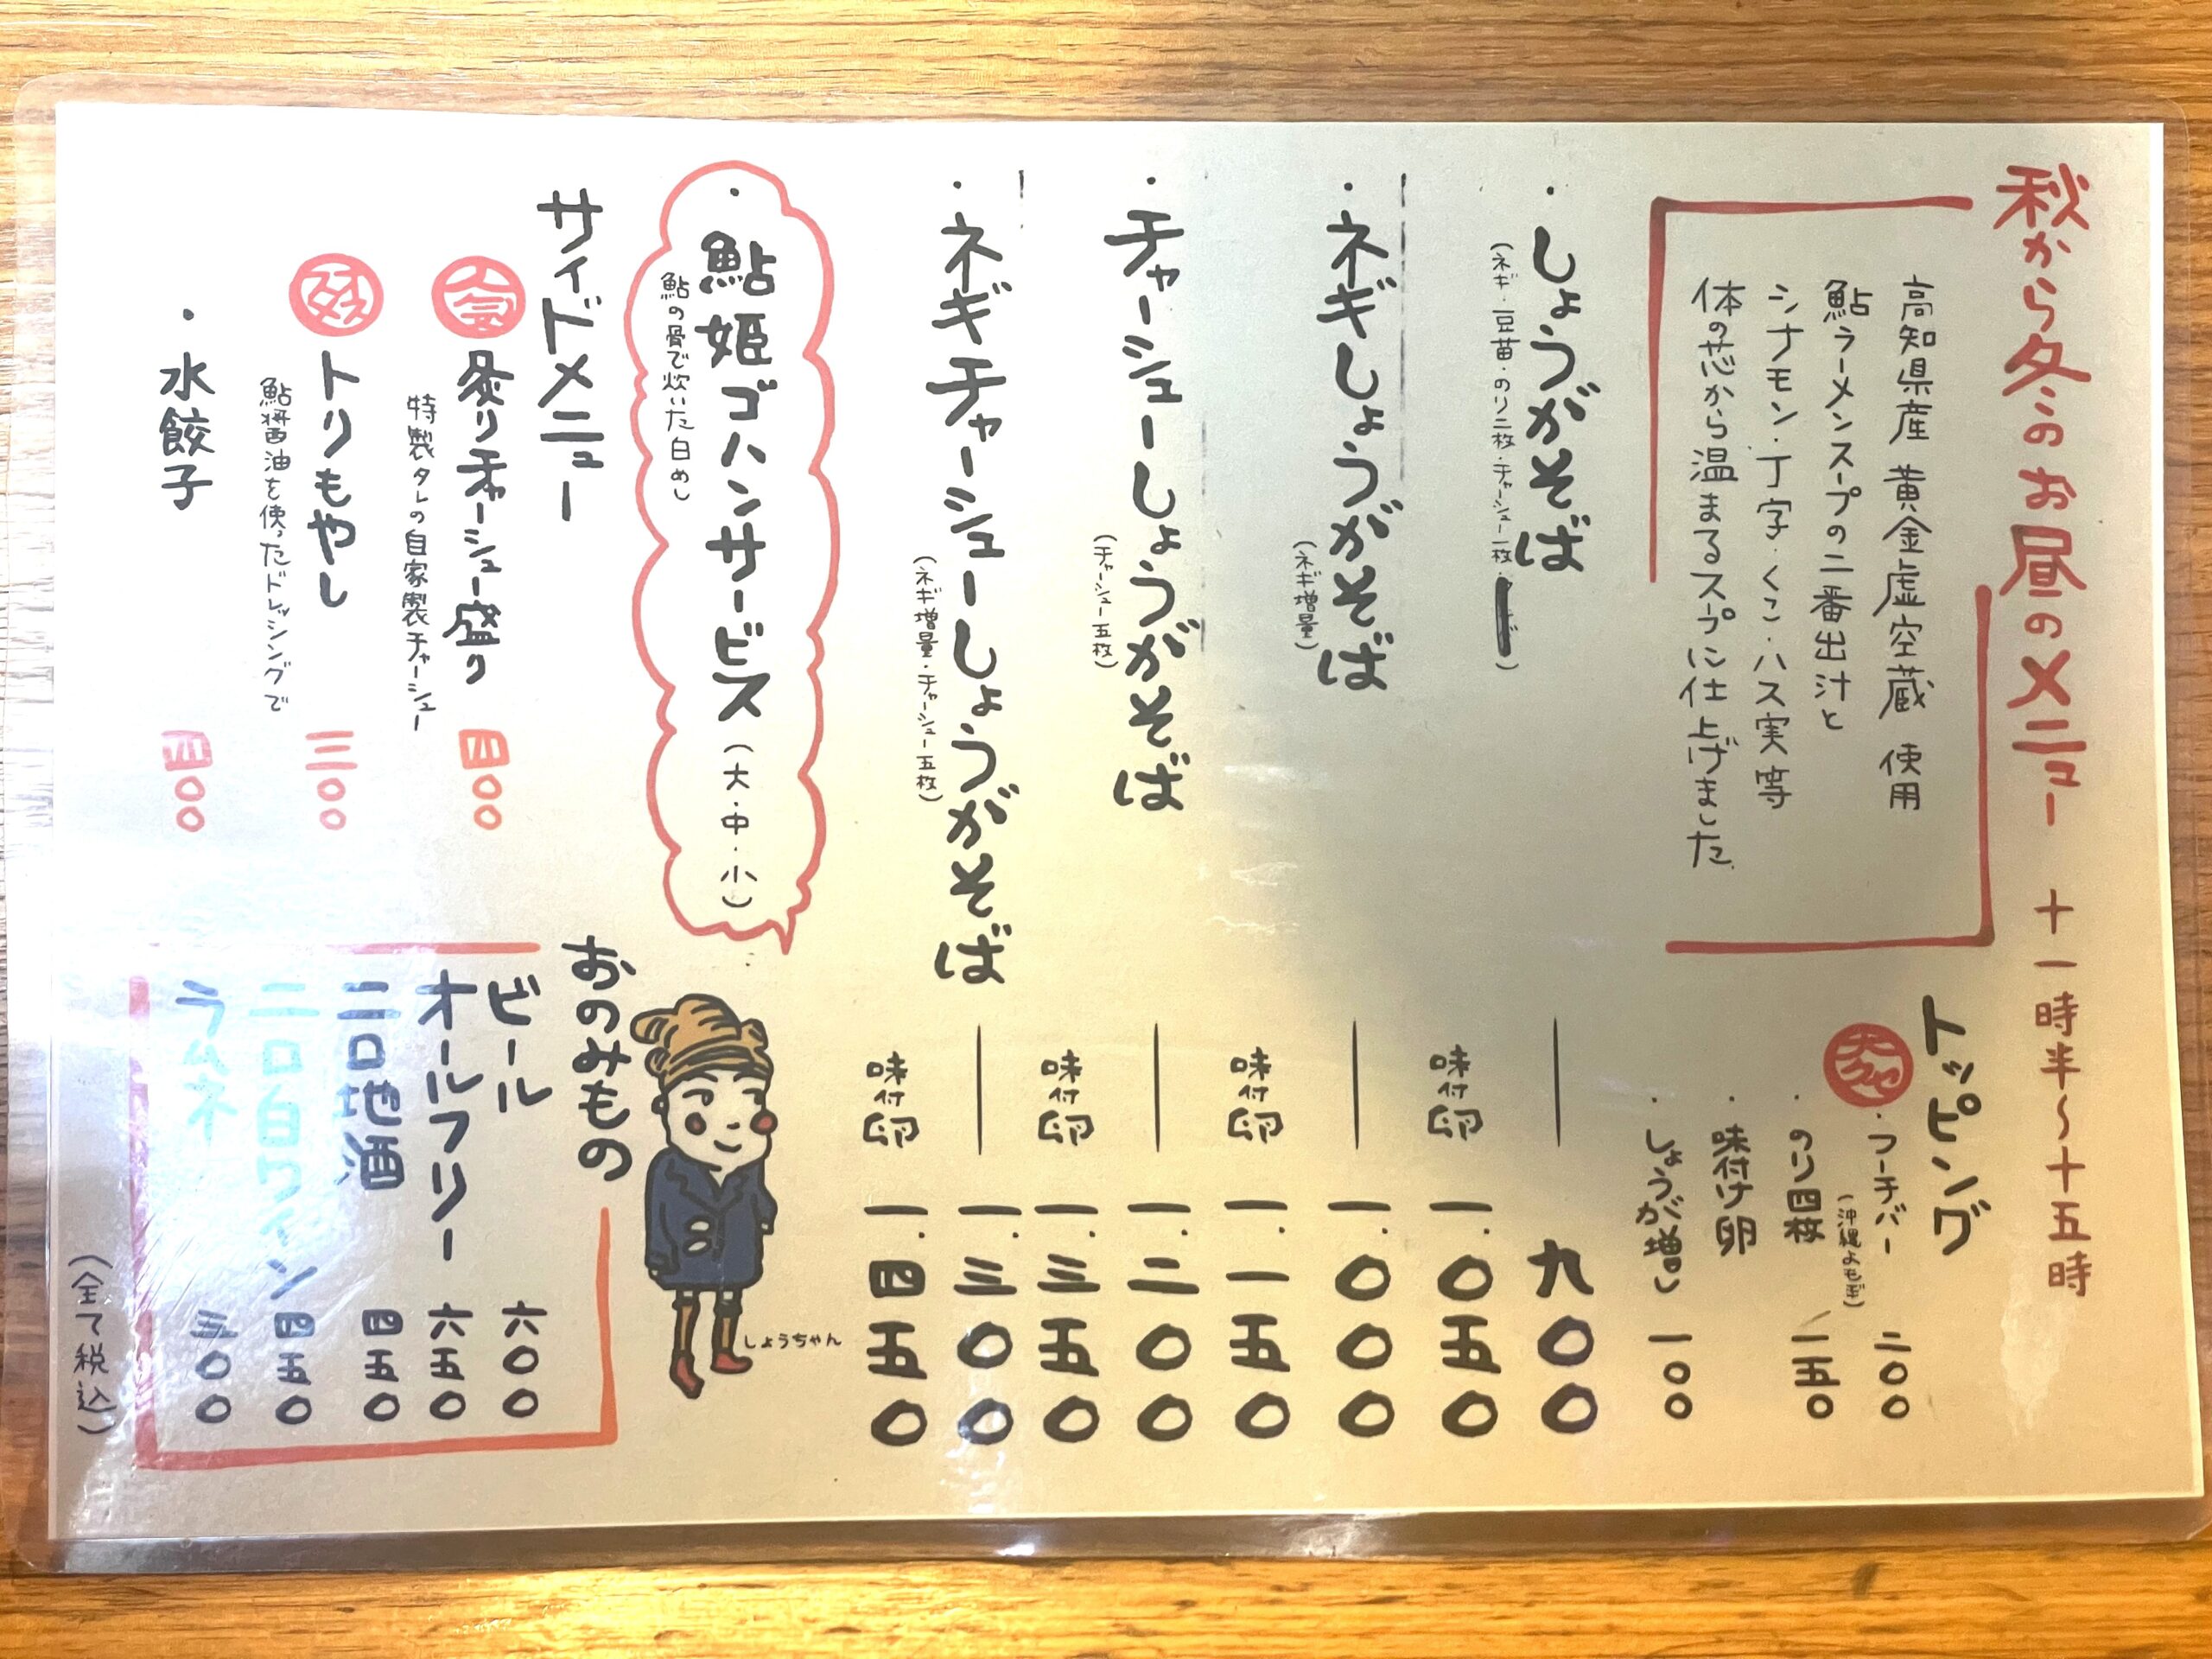 秋から冬のお昼のメニュー 十一時半〜十五時
高知県産 黄金虚空蔵 使用
鮎ラーメンスープの二番出汁と
シナモン・丁字・くこ・ハス実等
体の芯から温まるスープに仕上げました
トッピング
・フーチバー 二〇〇
(沖縄よもぎ)
・のり四枚 一五〇
・味付け卵
・しょうが増し 一〇〇
・しょうがそば 九〇〇
(ネギ・豆苗・のり二枚・チャーシュー一枚・)
味付卵 一.〇五〇
・ネギしょうがそば 一.〇〇〇
(ネギ増量)
味付卵 一.一五〇
・チャーシューしょうがそば 一.二〇〇
(チャーシュー五枚)
味付卵 一.三五〇
・ネギチャーシューしょうがそば 一.三〇〇
(ネギ増量・チャーシュー五枚)
味付卵 一.四五〇
・鮎姫ゴハンサービス(大・中・小)
鮎の骨で炊いた白めし
しょうちゃん
サイドメニュー
人気 炙りチャーシュー盛り 四〇〇
特製タレの自家製チャーシュー
トリもやし 三〇〇
鮎醤油を使ったドレッシングで
・水餃子 四〇〇
おのみもの
ビール 六〇〇
オールフリー 六五〇
二口地酒 四五〇
二口白ワイン 四五〇
ラムネ 三〇〇
(全て税込)